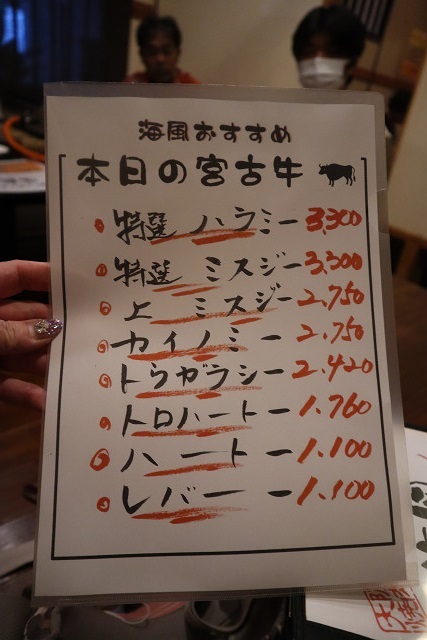 海風おすすめ
本日の宮古牛
特選 ハラミー3,300
特選 ミスジー3,300
上 ミスジー2,750
カイノミー2,750
トウガラシー2,420
トロハートー1,760
ハートー1,100
レバーー1,100